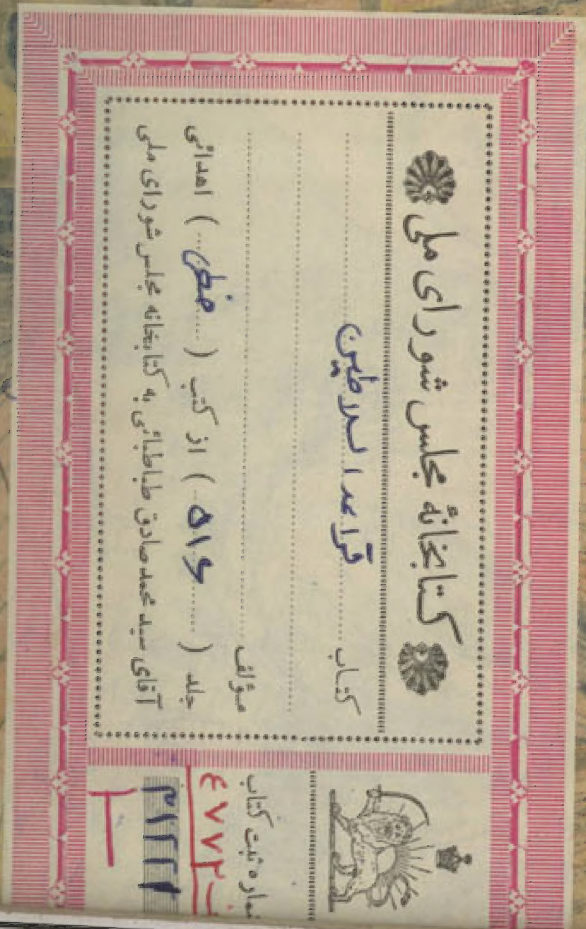 کتابخانهٔ مجلس شورای ملی
کتاب قواعد السلاطین
مؤلف
جلد ( ۵۱۶ ) از کتب ( خطی ) اهدائی
آقای سید محمد صادق طباطبائی به کتابخانه مجلس شورای ملی
شماره ثبت کتاب